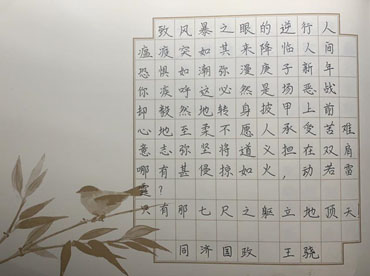 致风暴之眼的逆行人
瘟疫突如其来降临人间
恐惧如潮弥漫庚子新年
你疾呼这必然是场恶战
却毅然地转身披甲上前
心地至柔不愿人承受苦难
意志弥坚将道义担在双肩
哪有甚侵掠如火，动若雷
霆？
只有那七尺之躯立地顶天
同济国政 王骁